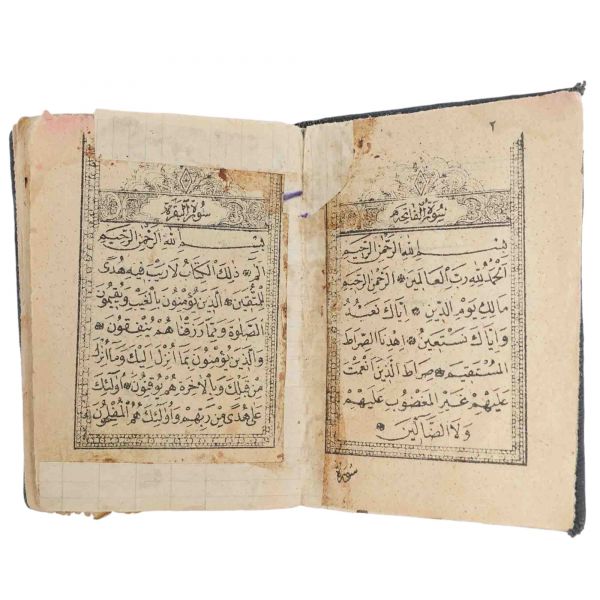 ٢
سورة الفاتحة
بِسْمِ اللهِ الرَّحْمٰنِ الرَّحِيمِ
اَلْحَمْدُ لِلّٰهِ رَبِّ الْعَالَمِينَ الرَّحْمٰنِ الرَّحِيمِ
مَالِكِ يَوْمِ الدِّينِ اِيَّاكَ نَعْبُدُ
وَاِيَّاكَ نَسْتَعِينُ اِهْدِنَا الصِّرَاطَ
الْمُسْتَقِيمَ صِرَاطَ الَّذِينَ اَنْعَمْتَ
عَلَيْهِمْ غَيْرِ الْمَغْضُوبِ عَلَيْهِمْ
وَلَا الضَّالِّينَ
سورة
سورة البقرة
بِسْمِ اللهِ الرَّحْمٰنِ الرَّحِيمِ
الم ذٰلِكَ الْكِتَابُ لَا رَيْبَ فِيهِ هُدًى
لِلْمُتَّقِينَ الَّذِينَ يُؤْمِنُونَ بِالْغَيْبِ وَيُقِيمُونَ
الصَّلٰوةَ وَمِمَّا رَزَقْنَاهُمْ يُنْفِقُونَ
وَالَّذِينَ يُؤْمِنُونَ بِمَا اُنْزِلَ اِلَيْكَ وَمَا اُنْزِلَ
مِنْ قَبْلِكَ وَبِالْاٰخِرَةِ هُمْ يُوقِنُونَ اُولٰئِكَ
عَلٰى هُدًى مِنْ رَبِّهِمْ وَاُولٰئِكَ هُمُ الْمُفْلِحُونَ